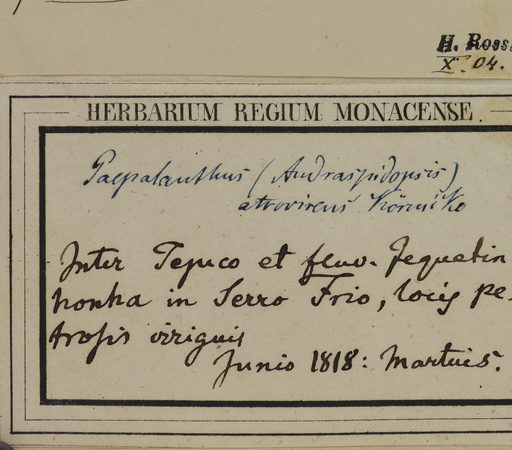 H. Ross.
X. 04.
HERBARIUM REGIUM MONACENSE.
Paepalanthus (Andraspidopsis)
atrovirens Körnicke
Inter Tejuco et fluv. Jequetin
honha in Serro Frio, locis pe-
trosis
Junio 1818: Martius.